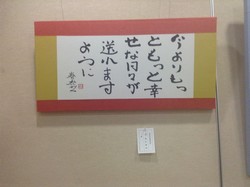 今よりもっ
ともっと幸
せな日々が
送れます
ように